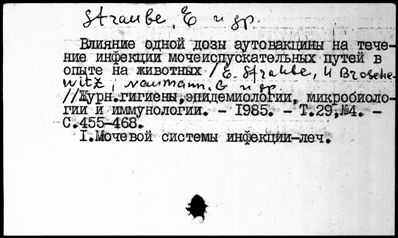 Straube, E и др.
Влияние одной дозы аутовакцины на тече-
ние инфекции мочеиспускательных путей в
опыте на животных /E. Straube, U Brosche-
witz, Naumann. G и др.
//Журн.гигиены,эпидемиологии, микробиоло-
гии и иммунологии. - 1985. - Т.29,№4. -
С.455-468.
I.Мочевой системы инфекции-леч.